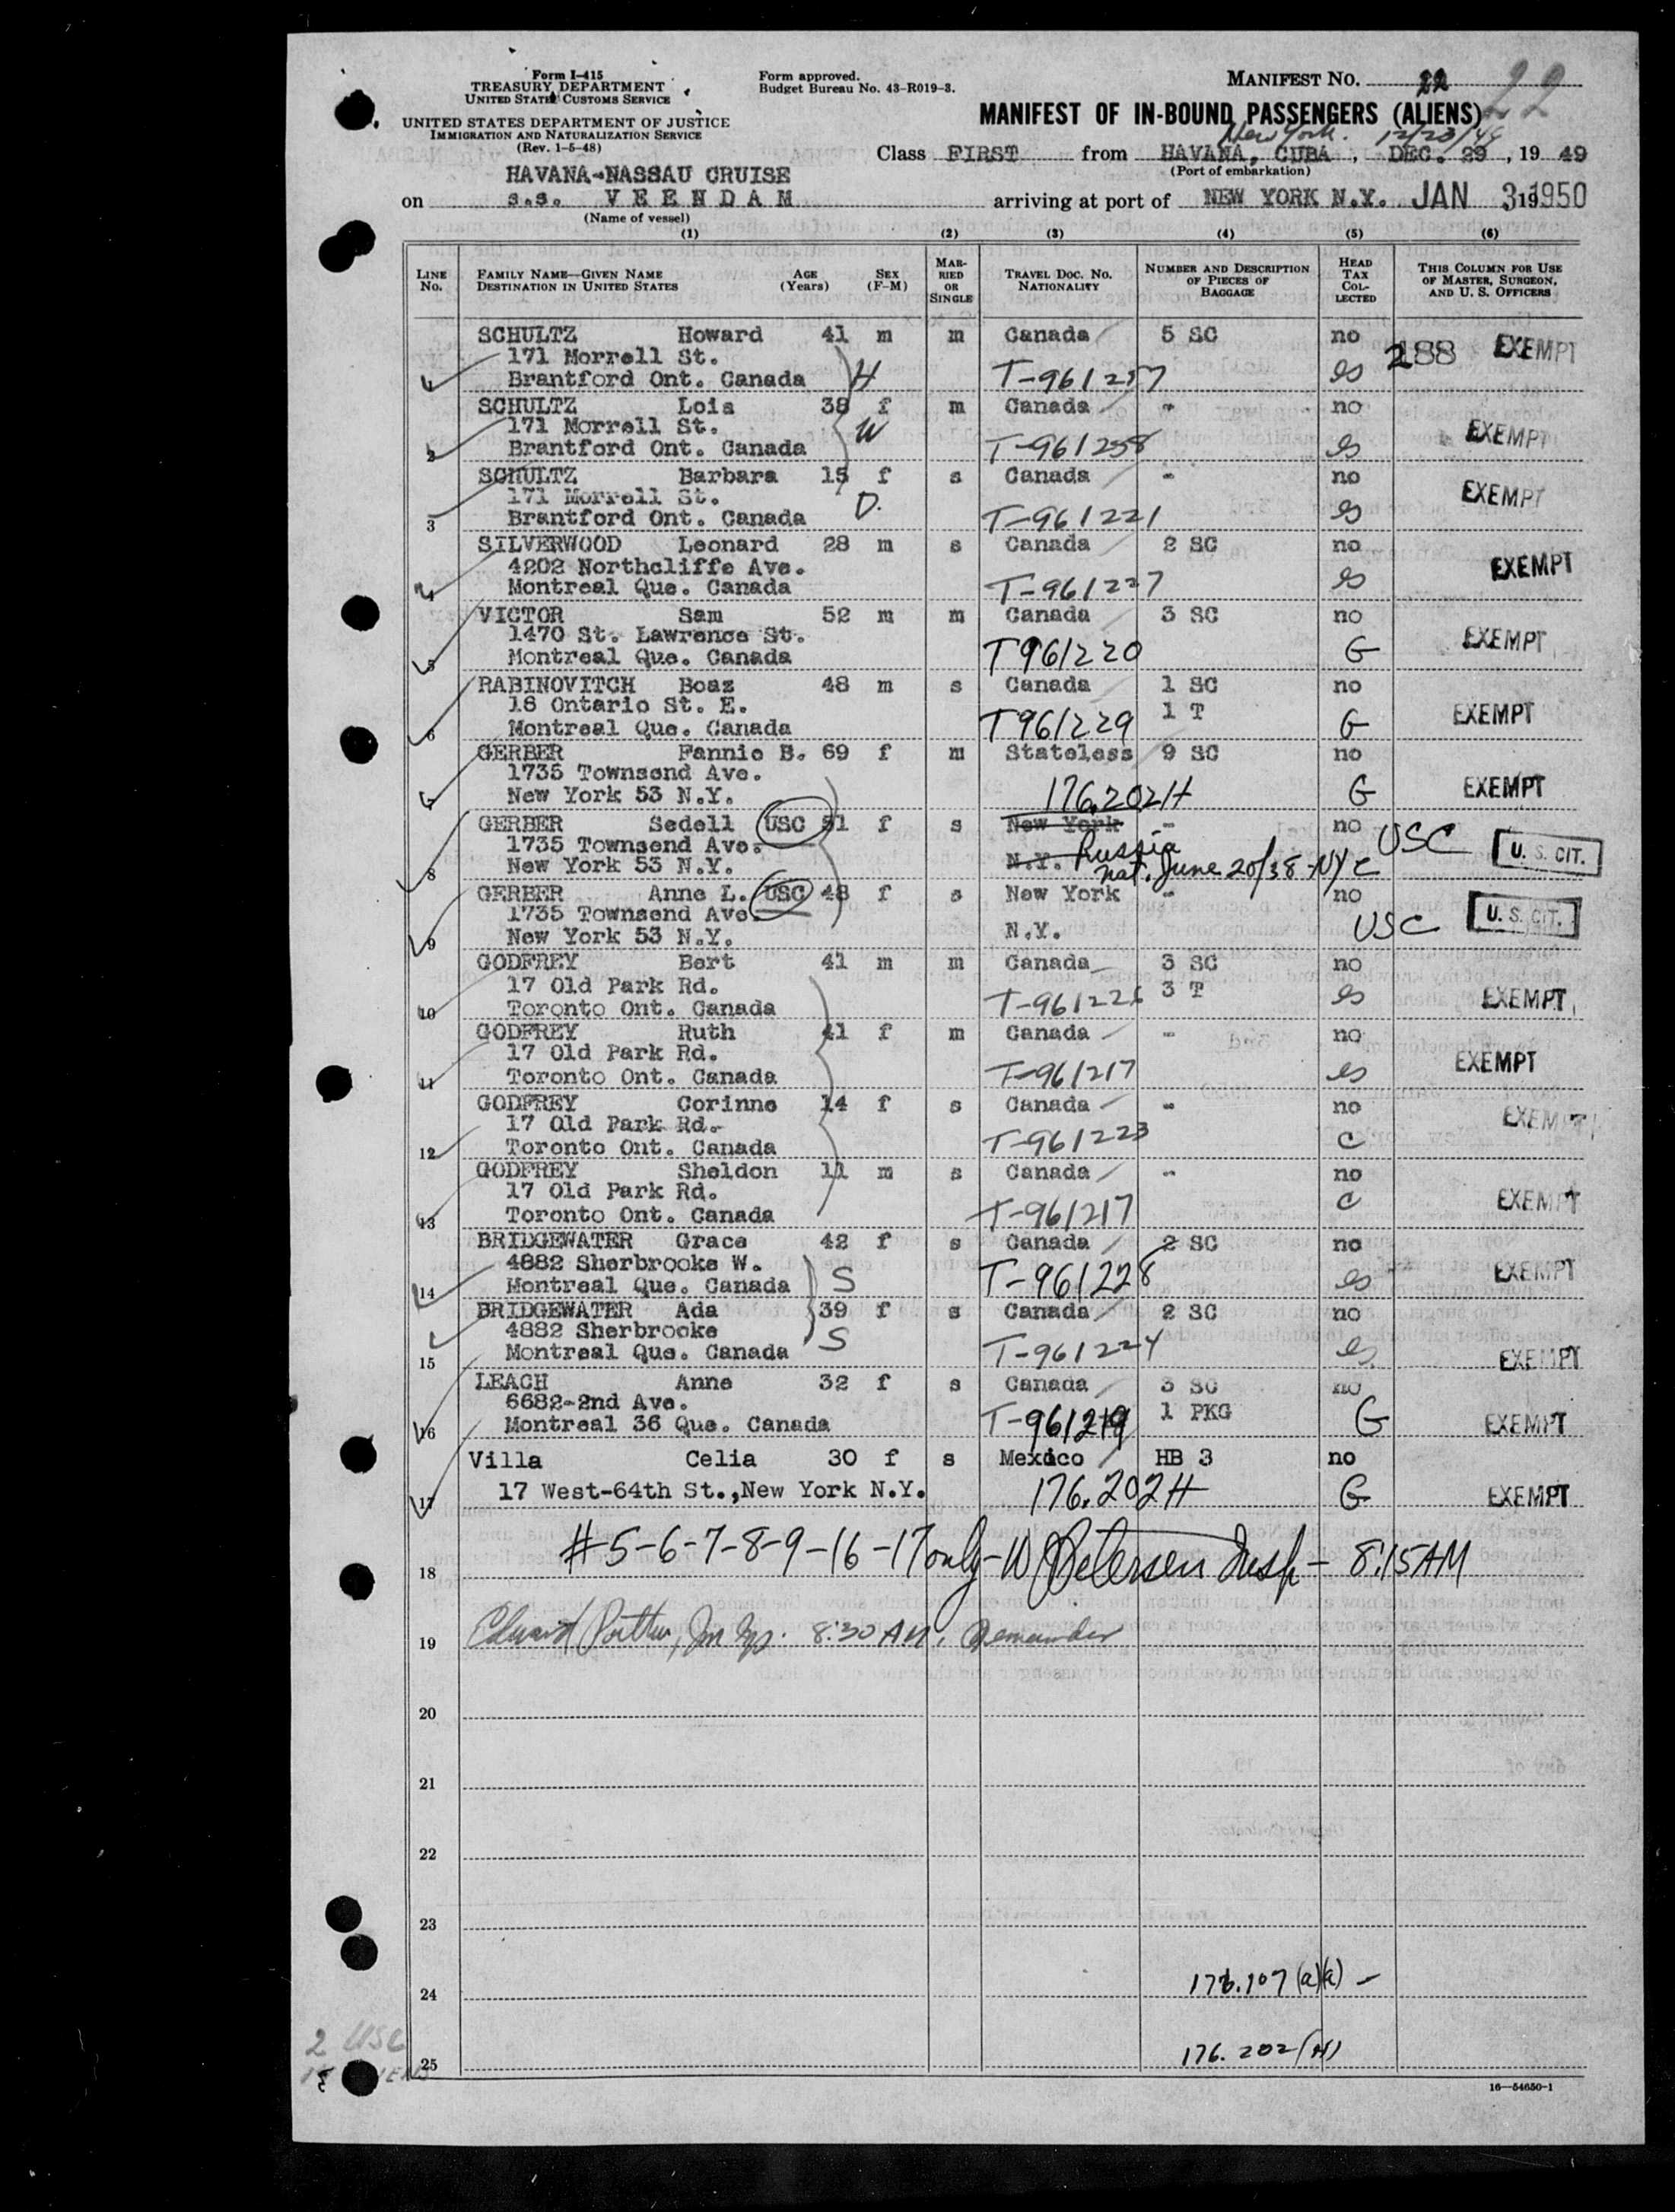 Form I-415
TREASURY DEPARTMENT
UNITED STATES CUSTOMS SERVICE
UNITED STATES DEPARTMENT OF JUSTICE
IMMIGRATION AND NATURALIZATION SERVICE
(Rev. 1-5-48)
Form approved.
Budget Bureau No. 43-R019-3.
MANIFEST NO. 22 22
MANIFEST OF IN-BOUND PASSENGERS (ALIENS)
New York. 12/23/49
Class FIRST from HAVANA, CUBA, DEC. 29, 19 49
(Port of embarkation)
HAVANA-NASSAU CRUISE
on s.s. VEENDAM arriving at port of NEW YORK N.Y. JAN 3 19 1950
(Name of vessel)
(1) (2) (3) (4) (5) (6)
LINE No. FAMILY NAME—GIVEN NAME DESTINATION IN UNITED STATES AGE (Years) SEX (F-M) MARRIED OR SINGLE TRAVEL DOC. NO. NATIONALITY NUMBER AND DESCRIPTION OF PIECES OF BAGGAGE HEAD TAX COLLECTED THIS COLUMN FOR USE OF MASTER, SURGEON, AND U. S. OFFICERS
SCHULTZ Howard 41 m m Canada 5 SC no 288 EXEMPT
171 Morrell St.
1 Brantford Ont. Canada H T-961257 es
SCHULTZ Lois 38 f m Canada - no
171 Morrell St. W EXEMPT
2 Brantford Ont. Canada T-961258 es
SCHULTZ Barbara 15 f s Canada - no
171 Morrell St. D. EXEMPT
3 Brantford Ont. Canada T-961221 es
SILVERWOOD Leonard 28 m s Canada 2 SC no
4202 Northcliffe Ave. EXEMPT
4 Montreal Que. Canada T-961227 es
VICTOR Sam 52 m m Canada 3 SC no
1470 St. Lawrence St. EXEMPT
5 Montreal Que. Canada T961220 G
RABINOVITCH Boaz 48 m s Canada 1 SC no
18 Ontario St. E. 1 T EXEMPT
6 Montreal Que. Canada T961229 G
GERBER Fannie B. 69 f m Stateless 9 SC no
1735 Townsend Ave. EXEMPT
7 New York 53 N.Y. 176.202H G
GERBER Sedell USC 51 f s New York - no USC
1735 Townsend Ave. Russia U. S. CIT.
8 New York 53 N.Y. N.Y. nat. June 20/38-NYC
GERBER Anne L. USC 48 f s New York - no
1735 Townsend Ave. U. S. CIT.
9 New York 53 N.Y. N.Y. USC
GODFREY Bert 41 m m Canada 3 SC no
17 Old Park Rd. 3 T EXEMPT
10 Toronto Ont. Canada T-961226 es
GODFREY Ruth 41 f m Canada - no
17 Old Park Rd. EXEMPT
11 Toronto Ont. Canada T-961217 es
GODFREY Corinne 14 f s Canada - no
17 Old Park Rd. EXEMPT
12 Toronto Ont. Canada T-961223 c
GODFREY Sheldon 11 m s Canada - no
17 Old Park Rd. EXEMPT
13 Toronto Ont. Canada T-961217 c
BRIDGEWATER Grace 42 f s Canada 2 SC no
4882 Sherbrooke W. EXEMPT
14 Montreal Que. Canada S T-961228 es
BRIDGEWATER Ada 39 f s Canada 2 SC no
4882 Sherbrooke S
15 Montreal Que. Canada T-961224 es EXEMPT
LEACH Anne 32 f s Canada 3 SC no
6682-2nd Ave. 1 PKG
16 Montreal 36 Que. Canada T-961219 G EXEMPT
Villa Celia 30 f s Mexico HB 3 no
17 17 West-64th St.,New York N.Y. 176.202H G EXEMPT
#-5-6-7-8-9-16-17 only-W Petersen Insp- 8:15AM
18
19 Edward Insp. 8:30 AM. Remainder
20
21
22
23
24 176.107(a)(a) -
25 176.202(H)
2 USC
16—54650-1